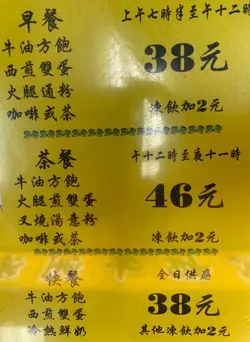 早餐 上午七時半至午十二時
牛油方飽
西煎雙蛋
火腿通粉
咖啡或茶
38元
凍飲加2元
茶餐 午十二時至夜十一時
牛油方飽
火腿煎雙蛋
叉燒湯意粉
咖啡或茶
46元
凍飲加2元
快餐 全日供應
牛油方飽
西煎雙蛋
冷熱鮮奶
38元
其他凍飲加2元